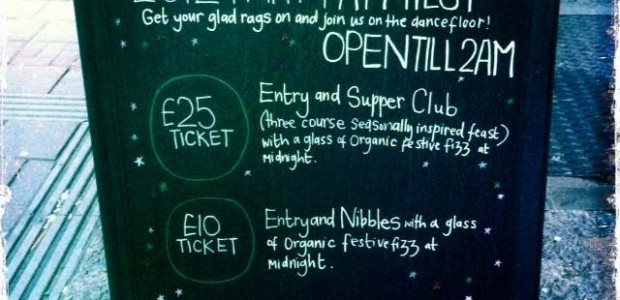 Get your glad rags on and join us on the dancefloor!
OPEN TILL 2AM
£25
TICKET
Entry and Supper Club
(three course seasonally inspired feast)
with a glass of Organic festive fizz at
midnight.
£10
TICKET
Entry and Nibbles with a glass
of Organic festive fizz at
midnight.